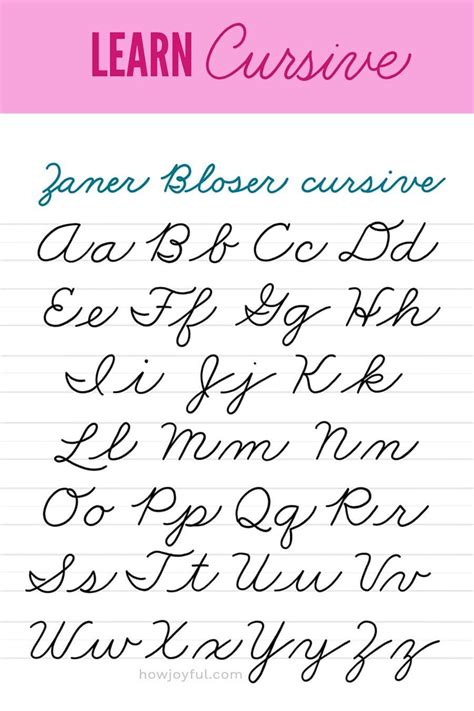 LEARN Cursive
Zaner Bloser cursive
Aa Bb Cc Dd
Ee Ff Gg Hh
Ii Jj Kk
Ll Mm Nn
Oo Pp Qq Rr
Ss Tt Uu Vv
Ww Xx Yy Zz
howjoyful.com